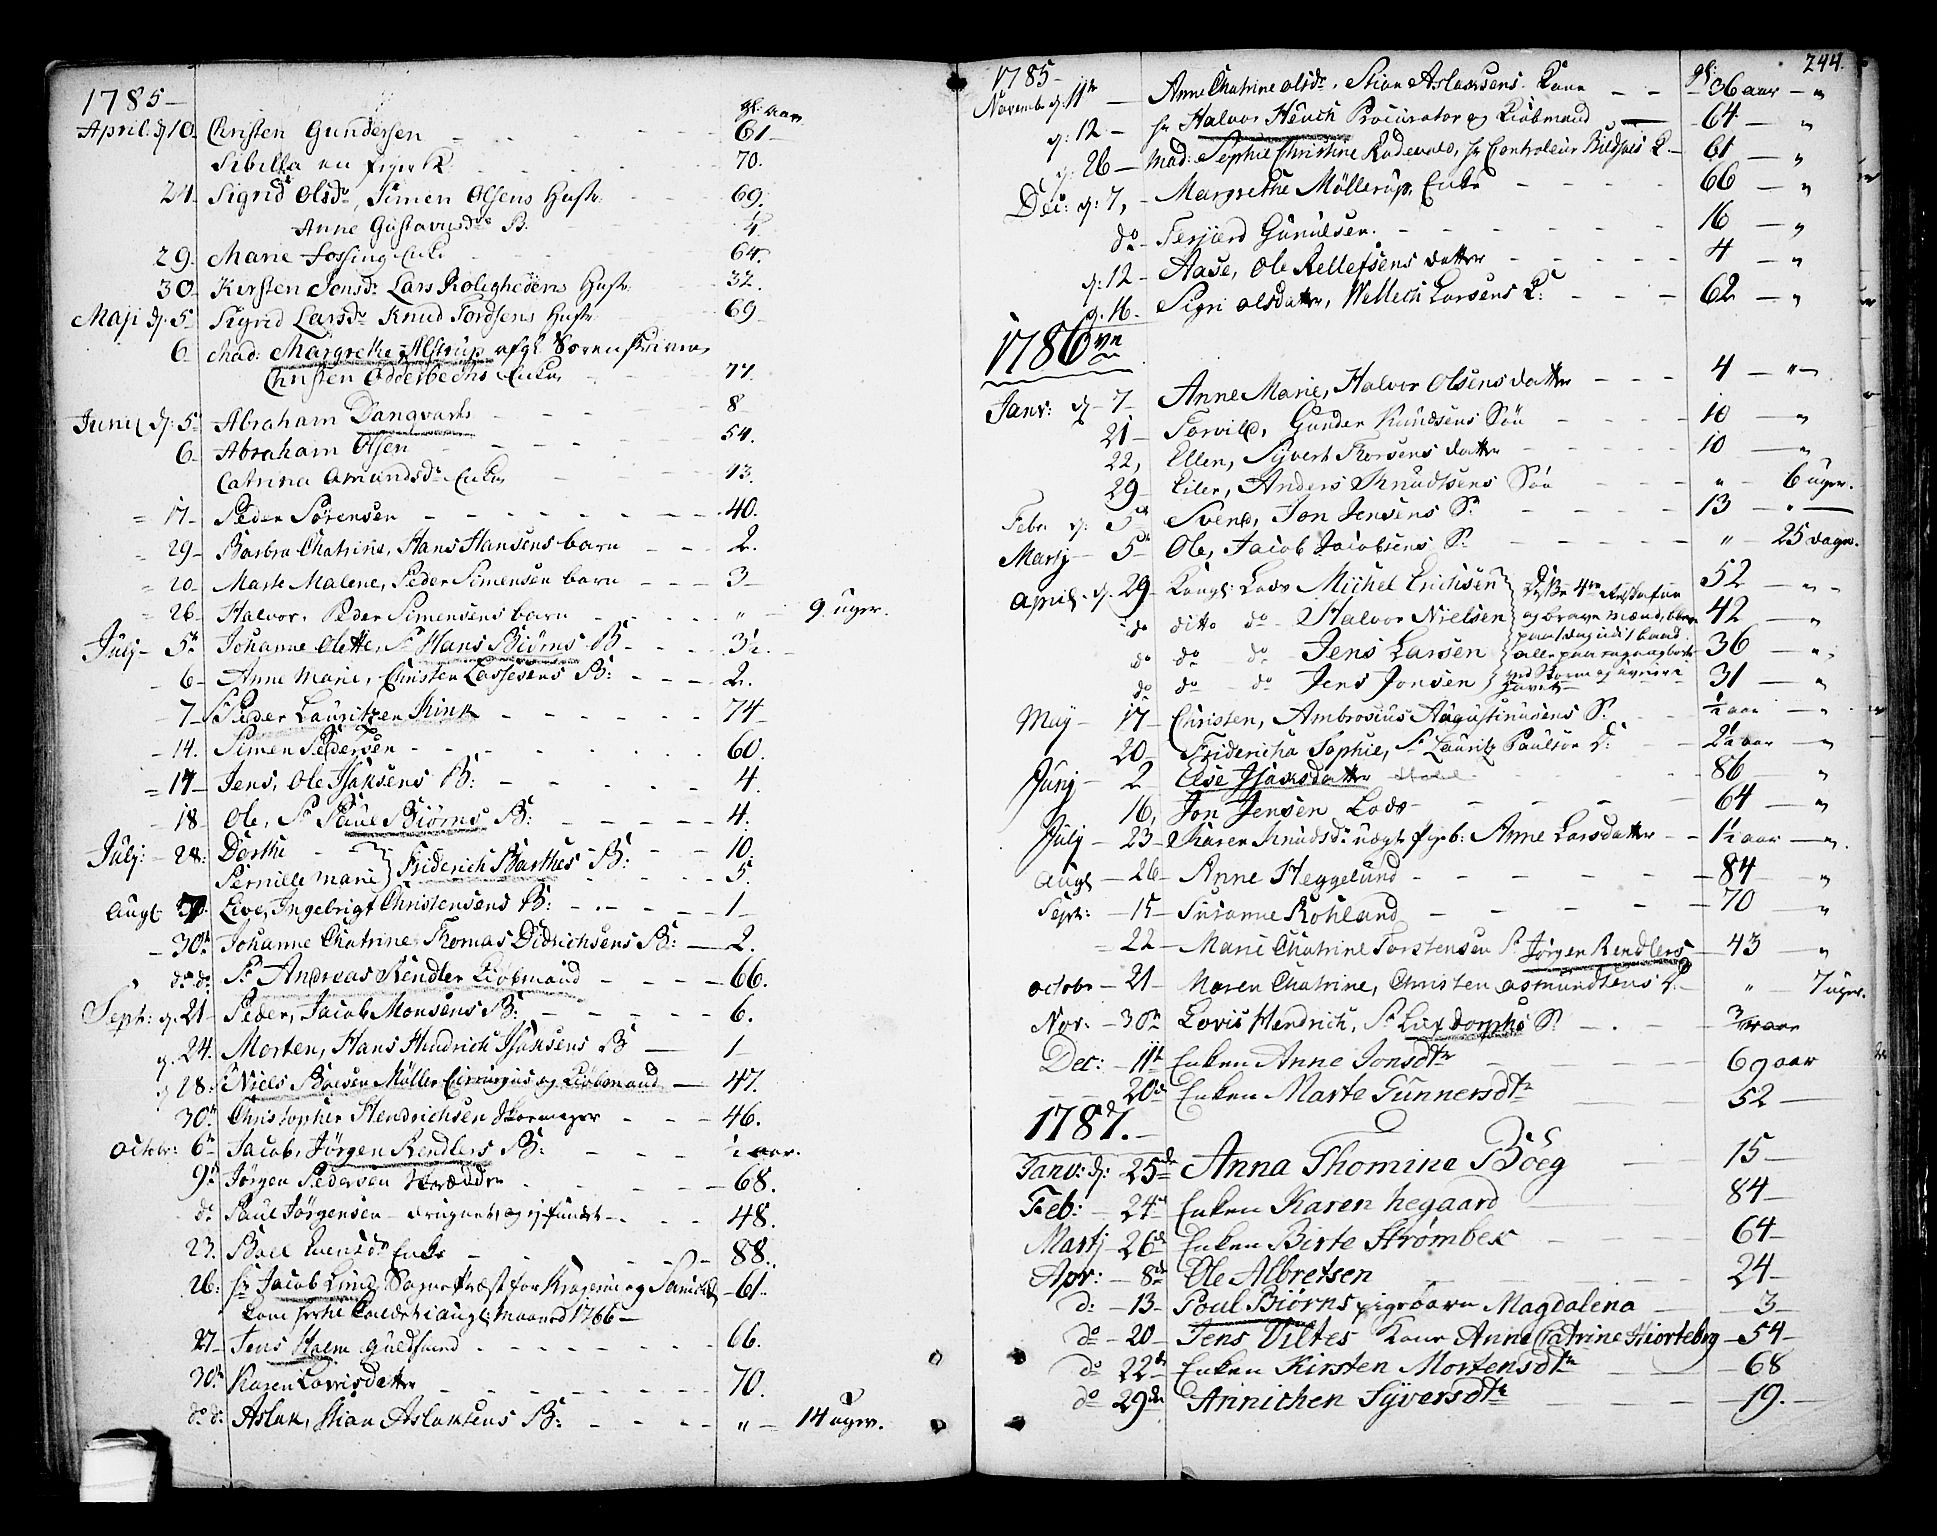 1785
gl: aar
April d 10. Christen Gundersen 61
Sibilla en 70.
24. Sigrid Olsd. Simen Olsens Hustr. 69.
Anne Gustavusd. B. 4.
29. Marie Fossing Enke 64.
30. Kirsten Jonsd. Lars Roligheden Hustr. 32.
Maji d. 5 Sigrid Larsd. Knud Tordsens Hustr 69
6. Mad: Margrethe Alstrup afgl. Sorenskriver
Christen Odderbechs Enke 77.
Junij d. 5 Abraham Dangvards 8
6. Abraham Olsen 54.
Catrina Amundsd. Enke 43.
17. Peder Sørensen 40.
29. Barbra Chatrine, Hans Hansens barn 2.
20. Marte Malene, Peder Simensen barn 3
26. Halvor, Peder Simensens barn " 9 uger.
Julj 5 Johanne Olette, Sr Hans Biørns B. 3½
6. Anne Marie, Christen Lassesens B: 2.
7. Sr Peder Lauritzen Kink 74
14. Simen Pedersen 60.
17 Jens, Ole Isaksens B: 4.
18. Ole, Sr Paul Biørns B: 4.
Julj: 28: Dorthe 10.
Pernille Marie } Friderich Barthes B: 5.
Augl. 7. Live, Ingebrigt Christensens B: 1
30. Johanne Chatrine Thomas Didrichsens B: 2.
do d. Sr Andreas Rendler Kiøbmand 66.
Sept: d. 21 Peder, Jacob Monsens B: 6.
d. 24. Morten, Hans Hindrich Isaksens B 1
d 28. Niels Boesen Møller Cirurgus og Kiøbmand 47.
30. Christopher Hendrichsen Skoemager 46.
Octobr: 6 Jacob, Jørgen Rendlers B: ½ aar.
9. Jørgen Pedersen Skrædder 68.
do Paul Jørgensen drugnet, og ej fundet 48.
23. Boel Evensd. Enke 88.
26. hr Jacob Lund Sogne Præst for Kragerøe og 61.
kom hertil Kaldet i Augl. Maaned 1766
27 Jens Holm Guldsmed 66.
30. Karen Lovrisdatter 70.
do d. Aslak, Stian Aslaksens B: " 14 uger.
244.
1785 gl:
Novemb d. 11te Anne Chatrine Olsdr. Stian Aslaksens Kone 36 aar "
d. 12 hr Halvor Heuch Procurator og Kiøbmand 64 "
d. 26 Mad: Sophie Christine Rodevald, hr Controleur K. 61 "
Dec: d. 7, Margrethe Möllerup, Enke 66 "
do Terjierd Gunulsen. 16 "
d. 12 Aase, Ole Rellefsens datter 4 "
d. 16. Sigri Olsdatter, Wellech Larsens K: 62 "
1786
Janv: d 7 Anne Marie, Halvor Olsens datter 4 "
21 Torvild, Gunder Knudsens Søn 10 "
22, Ellen, Syvert Thorsens datter 10 "
29 Eiler, Anders Knudtsens Søn " 6 uger.
Febr. d. 5 Svend, Jon Jensens S. 13 "
Martj 5 Ole, Jacob Jacobsens S. " 25 dage.
April d. 29 Kongl: Lods Michel Erichsen } Disse 4re 52 "
do ditto do Halvor Nielsen og brave Mænd, 42 "
do do do Jens Larsen 36 "
do do do Jens Jonsen ved Storm 31 "
havet
May 17 Christen, Ambrosius Augustinusens S. ½ aar "
20 Fridericha Sophie, Sr Lauritz Paulson D: 2½ aar "
Junj 2 Else Isaksdatter 86 "
16, Jon Jensen Lods 64 "
Julj 23 Karen Knudsd. uægt. pigeb: Anne Larsdatter 1½ aar "
Augl 26 Anne Heggelund 84 "
Sept: 15 Susanne Rohland 70 "
22 Marie Chatrine Torstensen Sr Jørgen Rendlers 43 "
Octobr 21 Maren Chatrine, Christen Asmundsens D. " 7 uger.
Nov. 30 Lovis Hendrich, Sr Luxdorphs S.
Dec: 11te Enken Anne Jonsdtr 69 aar
20de Enken Marte Gunnersdtr 52
1787.
Janv: d. 25de Anna Thomine Böeg 15
Feb: 24 Enken Karen Hegaard 84
Martj 26 Enken Birte Strømbek 64
Apr: 8de Ole Albretsen 24
d: 13 Poul Biørns pigebarn Magdalena 3
do 20 Jens Viltes Kone Anne Catrine Hiorteborg 54
do 22de Enken Kirsten Mortensdtr 68
do 29de Annichen Syversdtr 19.